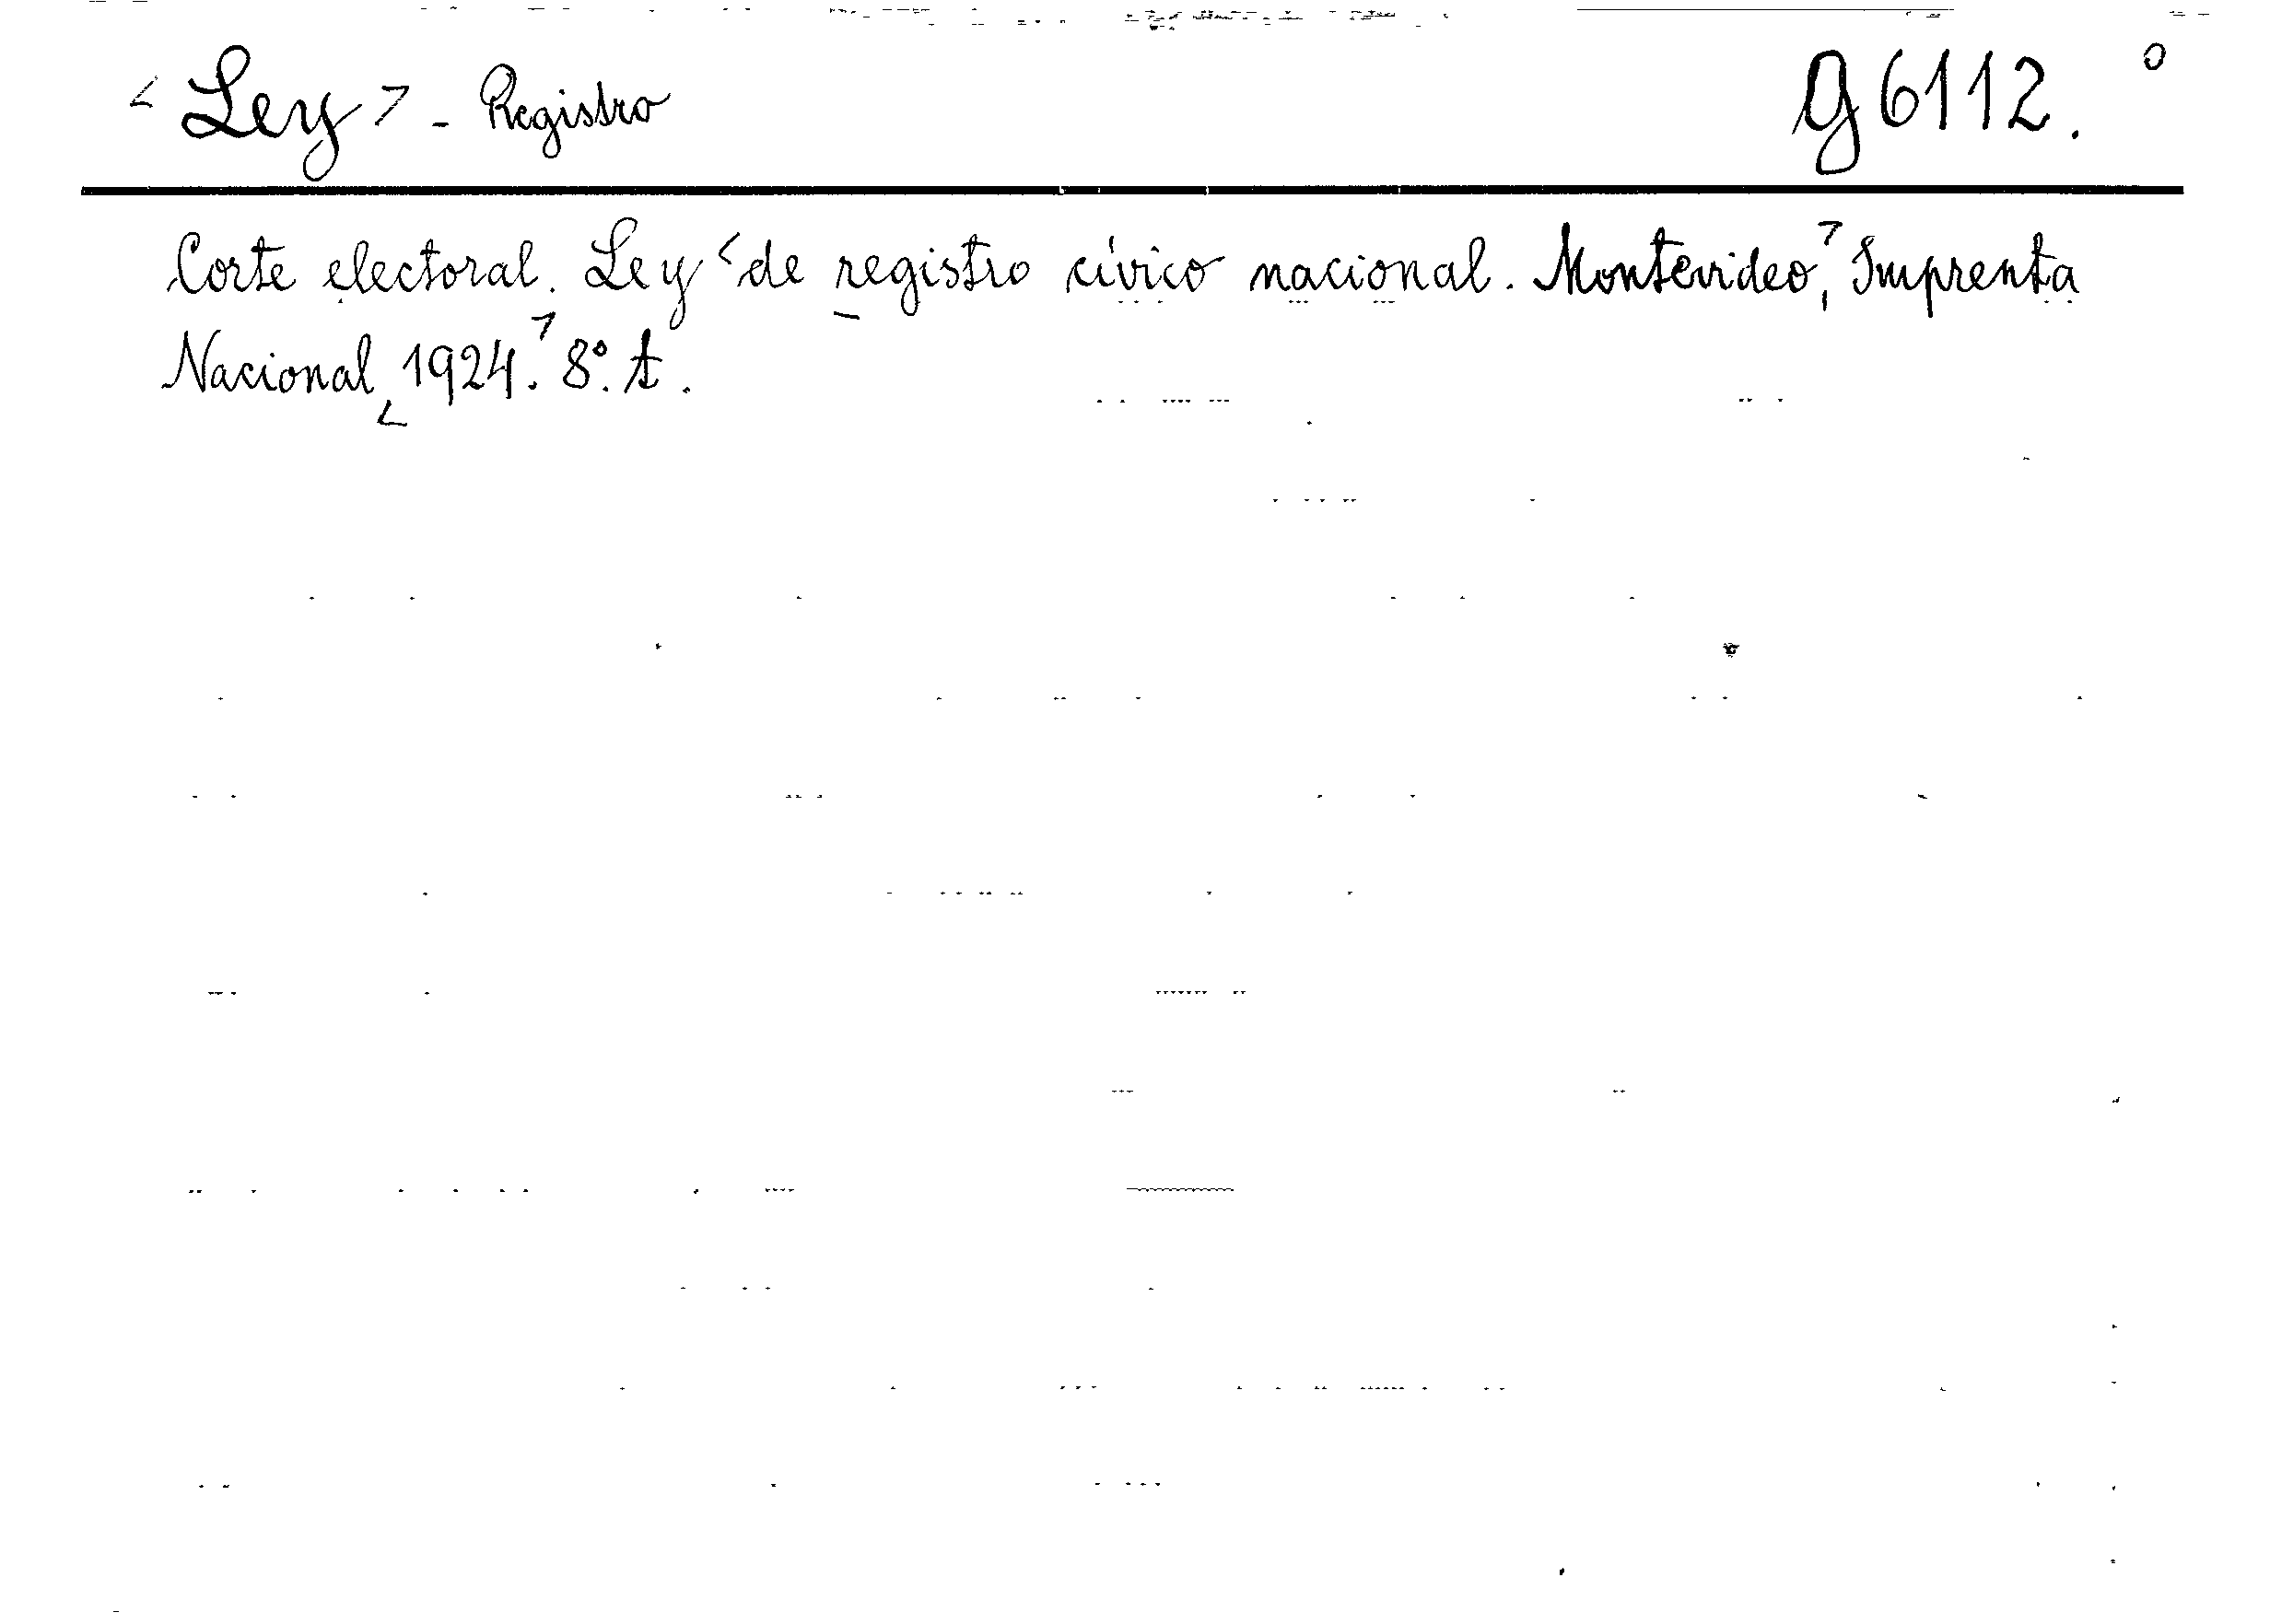 < Ley > - Registro g 6112. o
Corte electoral. Ley < de registro cívico nacional. Montevideo, > Imprenta
Nacional < 1924. > 8°. A.